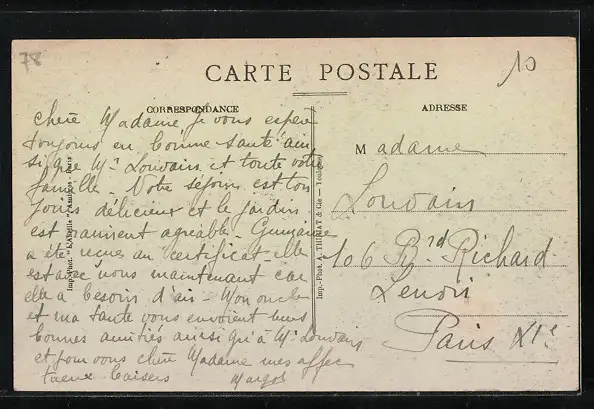 78
10
CARTE POSTALE
CORRESPONDANCE
ADRESSE
chère Madame, je vous espère
toujours en bonne santé ain
si que Mr Louvain et toute votre
famille. Notre séjour est tou
jours délicieux et le jardin
est vraiment agréable.
a été reçue au certificat elle
est avec nous maintenant car
elle a besoin d'air. Mon oncle
et ma tante vous envoient leurs
bonnes amitiés ainsi qu'à Mr Louvain
et pour vous chère Madame mes affec
tueux baisers Margot
Madame
Louvain
106 Bd Richard
Lenoir
Paris XIe
Imp.-Phot. A. THIRIAT & Cie — Toulouse
Imp.-Phot.